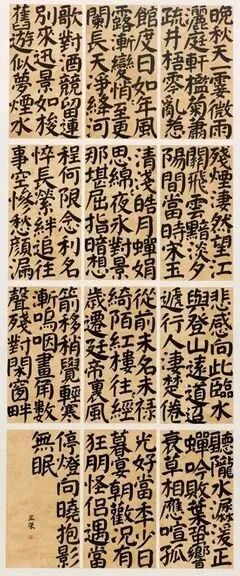 晚秋天一霎微雨
灑庭軒檻菊蕭
疏井梧零亂惹
殘煙淒然望江
關飛雲黯淡夕
陽間當時宋玉
悲感向此臨水
與登山遠道迢
遞行人淒楚倦
聽隴水潺湲正
蟬吟敗葉蛩響
衰草相應喧孤
館度日如年風
露漸變悄至更
闌長天淨絳河
清淺皓月嬋娟
思綿夜永對景
那堪屈指暗想
從前未名未祿
綺陌紅樓往經
歲遷延帝裏風
光好當年少日
暮宴朝歡況有
狂朋怪侶遇當
歌對酒競留連
別來迅景如梭
舊遊似夢煙水
程何限念利名
悴長縈絆追往
事空慘愁顏漏
箭移稍覺輕寒
漸嗚咽畫角數
聲殘對閑窗畔
停燈向曉抱影
無眠